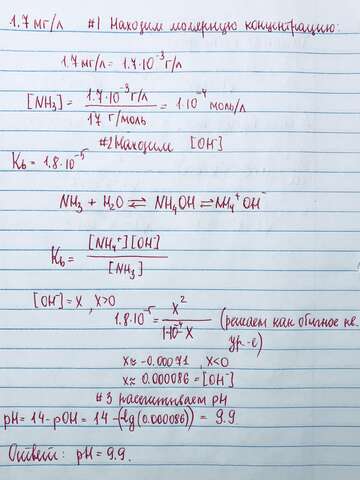 1.7 мг/л #1 Находим молярную концентрацию:
1.7 мг/л = 1.7·10⁻³ г/л
[NH₃] = 1.7·10⁻³ г/л / 17 г/моль = 1·10⁻⁴ моль/л
#2 Находим [OH⁻]
Kb = 1.8·10⁻⁵
NH₃ + H₂O ⇌ NH₄OH ⇌ NH₄⁺ OH⁻
Kb = [NH₄⁺][OH⁻] / [NH₃]
[OH⁻] = X , X>0
1.8·10⁻⁵ = X² / 1·10⁻⁴ X (решаем как обычное кв.
ур-е)
X ≈ -0.00071 , X<0
X ≈ 0.000086 = [OH⁻]
#3 рассчитываем pH
pH = 14 - pOH = 14 - (lg(0.000086)) = 9.9.
Ответ: pH = 9.9.